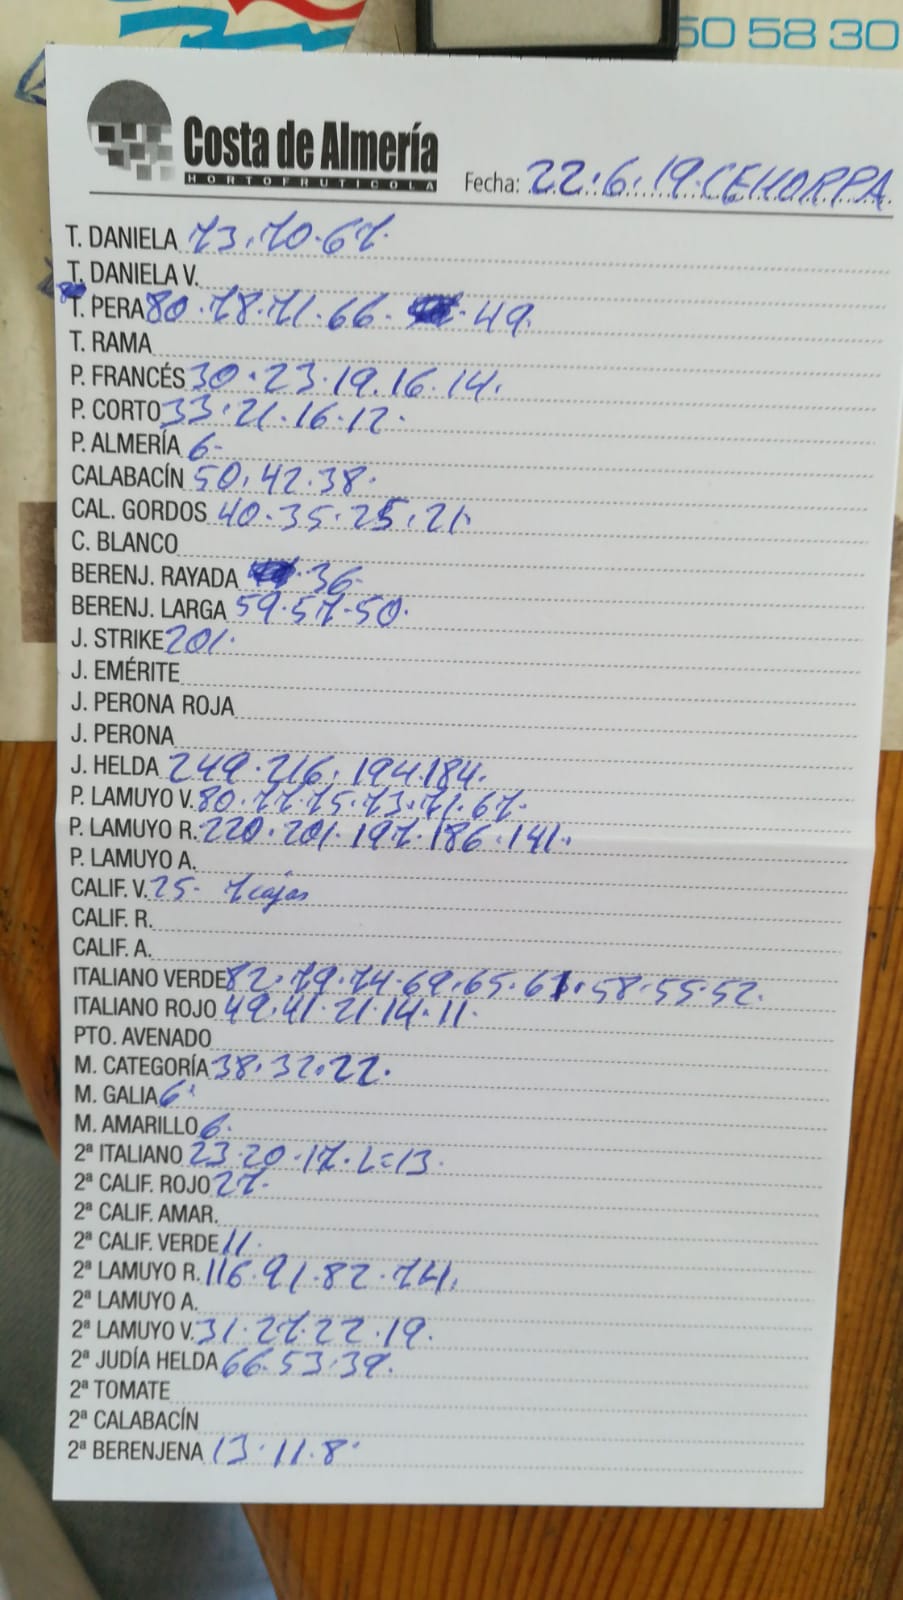 50 58 30
Costa de Almería
HORTOFRUTICOLA
Fecha: 22.6.19.CEHORPA
T. DANIELA 73.70.67.
T. DANIELA V.
T. PERA 80.78.71.66. .49.
T. RAMA
P. FRANCÉS 30.23.19.16.14.
P. CORTO 33.21.16.12.
P. ALMERÍA 6-
CALABACÍN 50.42.38.
CAL. GORDOS 40.35.25.21.
C. BLANCO
BERENJ. RAYADA .36-
BERENJ. LARGA 59.57.50.
J. STRIKE 201.
J. EMÉRITE
J. PERONA ROJA
J. PERONA
J. HELDA 249.216.194.184.
P. LAMUYO V. 80.77.75.73.71.67.
P. LAMUYO R. 220.201.197.186.141.
P. LAMUYO A.
CALIF. V. 25- 7 cajas
CALIF. R.
CALIF. A.
ITALIANO VERDE 82.79.74.69.65.61.58.55.52.
ITALIANO ROJO 49.41.21.14.11.
PTO. AVENADO
M. CATEGORÍA 38.32.22.
M. GALIA 6.
M. AMARILLO 6.
2ª ITALIANO 23.20.17.L=13.
2ª CALIF. ROJO 27.
2ª CALIF. AMAR.
2ª CALIF. VERDE 11.
2ª LAMUYO R. 116.91.82.74.
2ª LAMUYO A.
2ª LAMUYO V. 31.27.22.19.
2ª JUDÍA HELDA 66.53.39.
2ª TOMATE
2ª CALABACÍN
2ª BERENJENA 13.11.8.